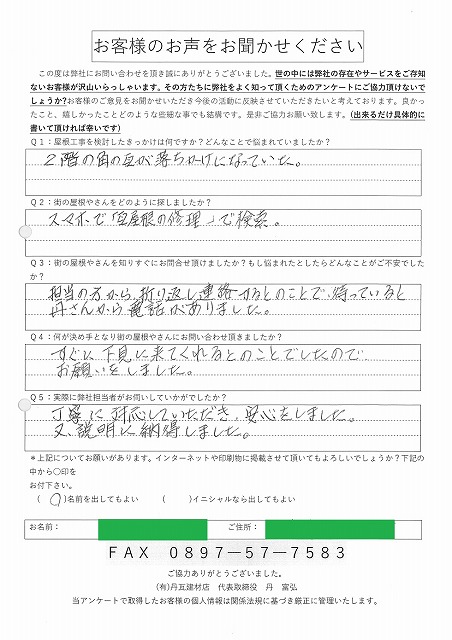 お客様のお声をお聞かせください
この度は弊社にお問い合わせを頂き誠にありがとうございました。世の中には弊社の存在やサービスをご存知
ないお客様が沢山いらっしゃいます。その方たちに弊社をよく知って頂くためのアンケートにご協力頂けないで
しょうか?お客様のご意見をお聞かせいただき今後の活動に反映させていただきたいと考えております。良かっ
たこと、嬉しかったことどのような些細な事でも結構です。是非ご協力お願い致します。(出来るだけ具体的に
書いて頂ければ幸いです)
Q1:屋根工事を検討したきっかけは何ですか?どんなことで悩まれていましたか?
2階の角の瓦が落ちかけになっていた。
Q2:街の屋根やさんをどのように探しましたか?
スマホで「瓦屋根の修理」で検索。
Q3:街の屋根やさんを知りすぐにお問合せ頂けましたか?もし悩まれたとしたらどんなことがご不安でした
か?
担当の方から折り返し連絡するとのことで、待っていると
丹さんから電話がありました。
Q4:何が決め手となり街の屋根やさんにお問い合わせ頂きましたか?
すぐに下見に来てくれるとのことでしたので
お願いをしました。
Q5:実際に弊社担当者がお伺いしていかがでしたか?
丁寧に対応していただき、安心をしました。
又、説明に納得しました。
*上記についてお願いがあります。インターネットや印刷物に掲載させて頂いてもよろしいでしょうか?下記の
中から〇印を
お付下さい。
(〇)名前を出してもよい ( )イニシャルなら出してもよい
お名前: ご住所:
FAX 0897-57-7583
ご協力ありがとうございました。
(有)丹瓦建材店 代表取締役 丹 富弘
当アンケートで取得したお客様の個人情報は関係法規に基づき厳正に管理いたします。